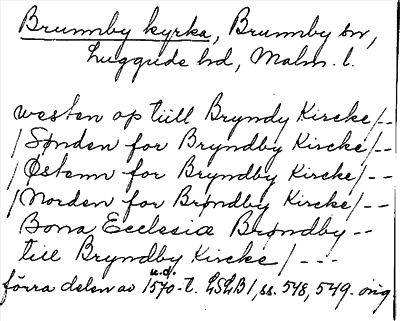 Brunnby kyrka, Brunnby sn,
Luggude hd, Malm. l.
westen op tiill Bryndy Kircke/--
/Sønden for Bryndby Kircke/--
/Østenn for Bryndby Kircke/--
/Norden for Brøndby Kircke/--
Bona Ecclesiæ Brøndby--
till Bryndby Kircke/---
förra delen av 1570-t. u.å. LSLB1, ss. 548, 549. orig